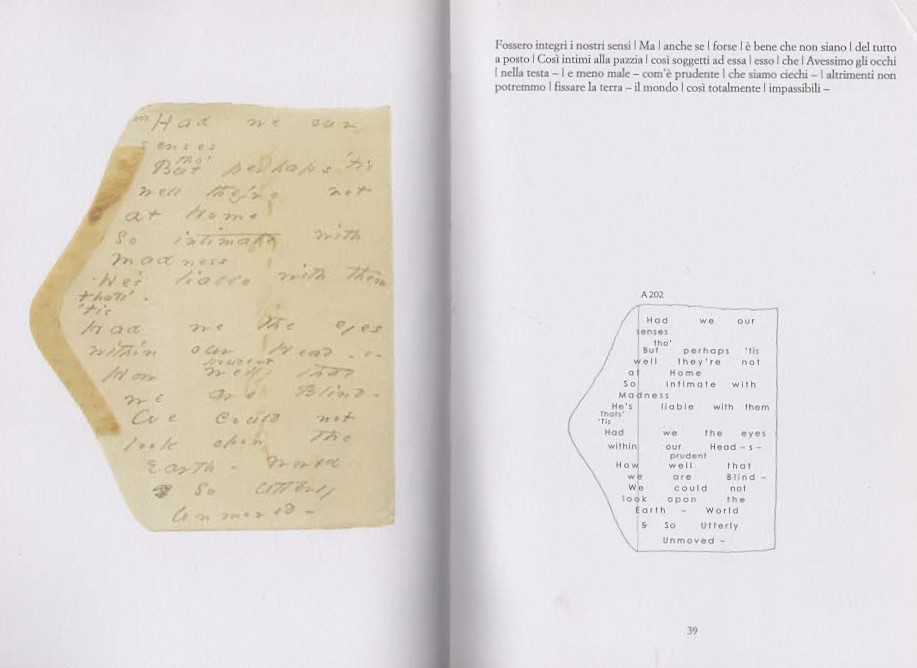 Had we our
senses
tho'
But perhaps 'tis
well they're not
at Home
So intimate with
Madness
He's liable with them
thats'
'tis
Had we the eyes
within our Head - s -
prudent
How well that
we are Blind -
We could not
look opon the
Earth - World
& So utterly
Unmoved -
Fossero integri i nostri sensi | Ma | anche se | forse | è bene che non siano | del tutto
a posto | Così intimi alla pazzia | così soggetti ad essa | esso | che | Avessimo gli occhi
| nella testa – | e meno male – com'è prudente | che siamo ciechi – | altrimenti non
potremmo | fissare la terra – il mondo | così totalmente | impassibili –
A 202
Had we our
senses
tho'
But perhaps 'tis
well they're not
at Home
So intimate with
Madness
He's liable with them
Thats'
'Tis
Had we the eyes
within our Head - s -
prudent
How well that
we are Blind -
We could not
look opon the
Earth - World
& So Utterly
Unmoved -
39